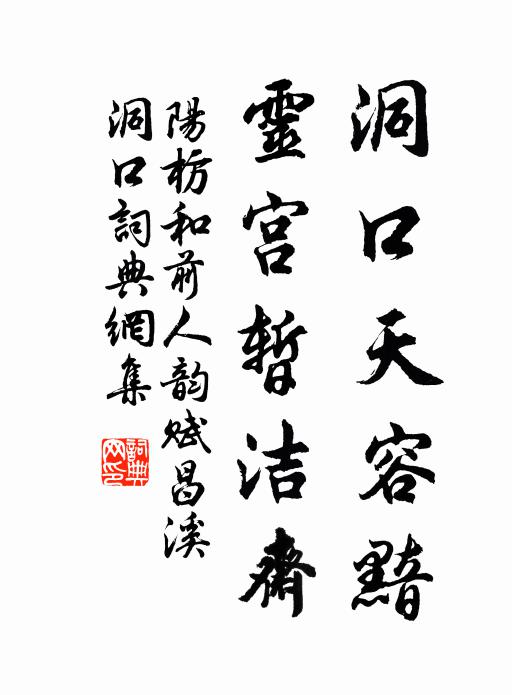 洞口天容黯
靈宮暫洁齋
陽枋和前人韵賦昌溪
洞口詞典網集
詞典网印